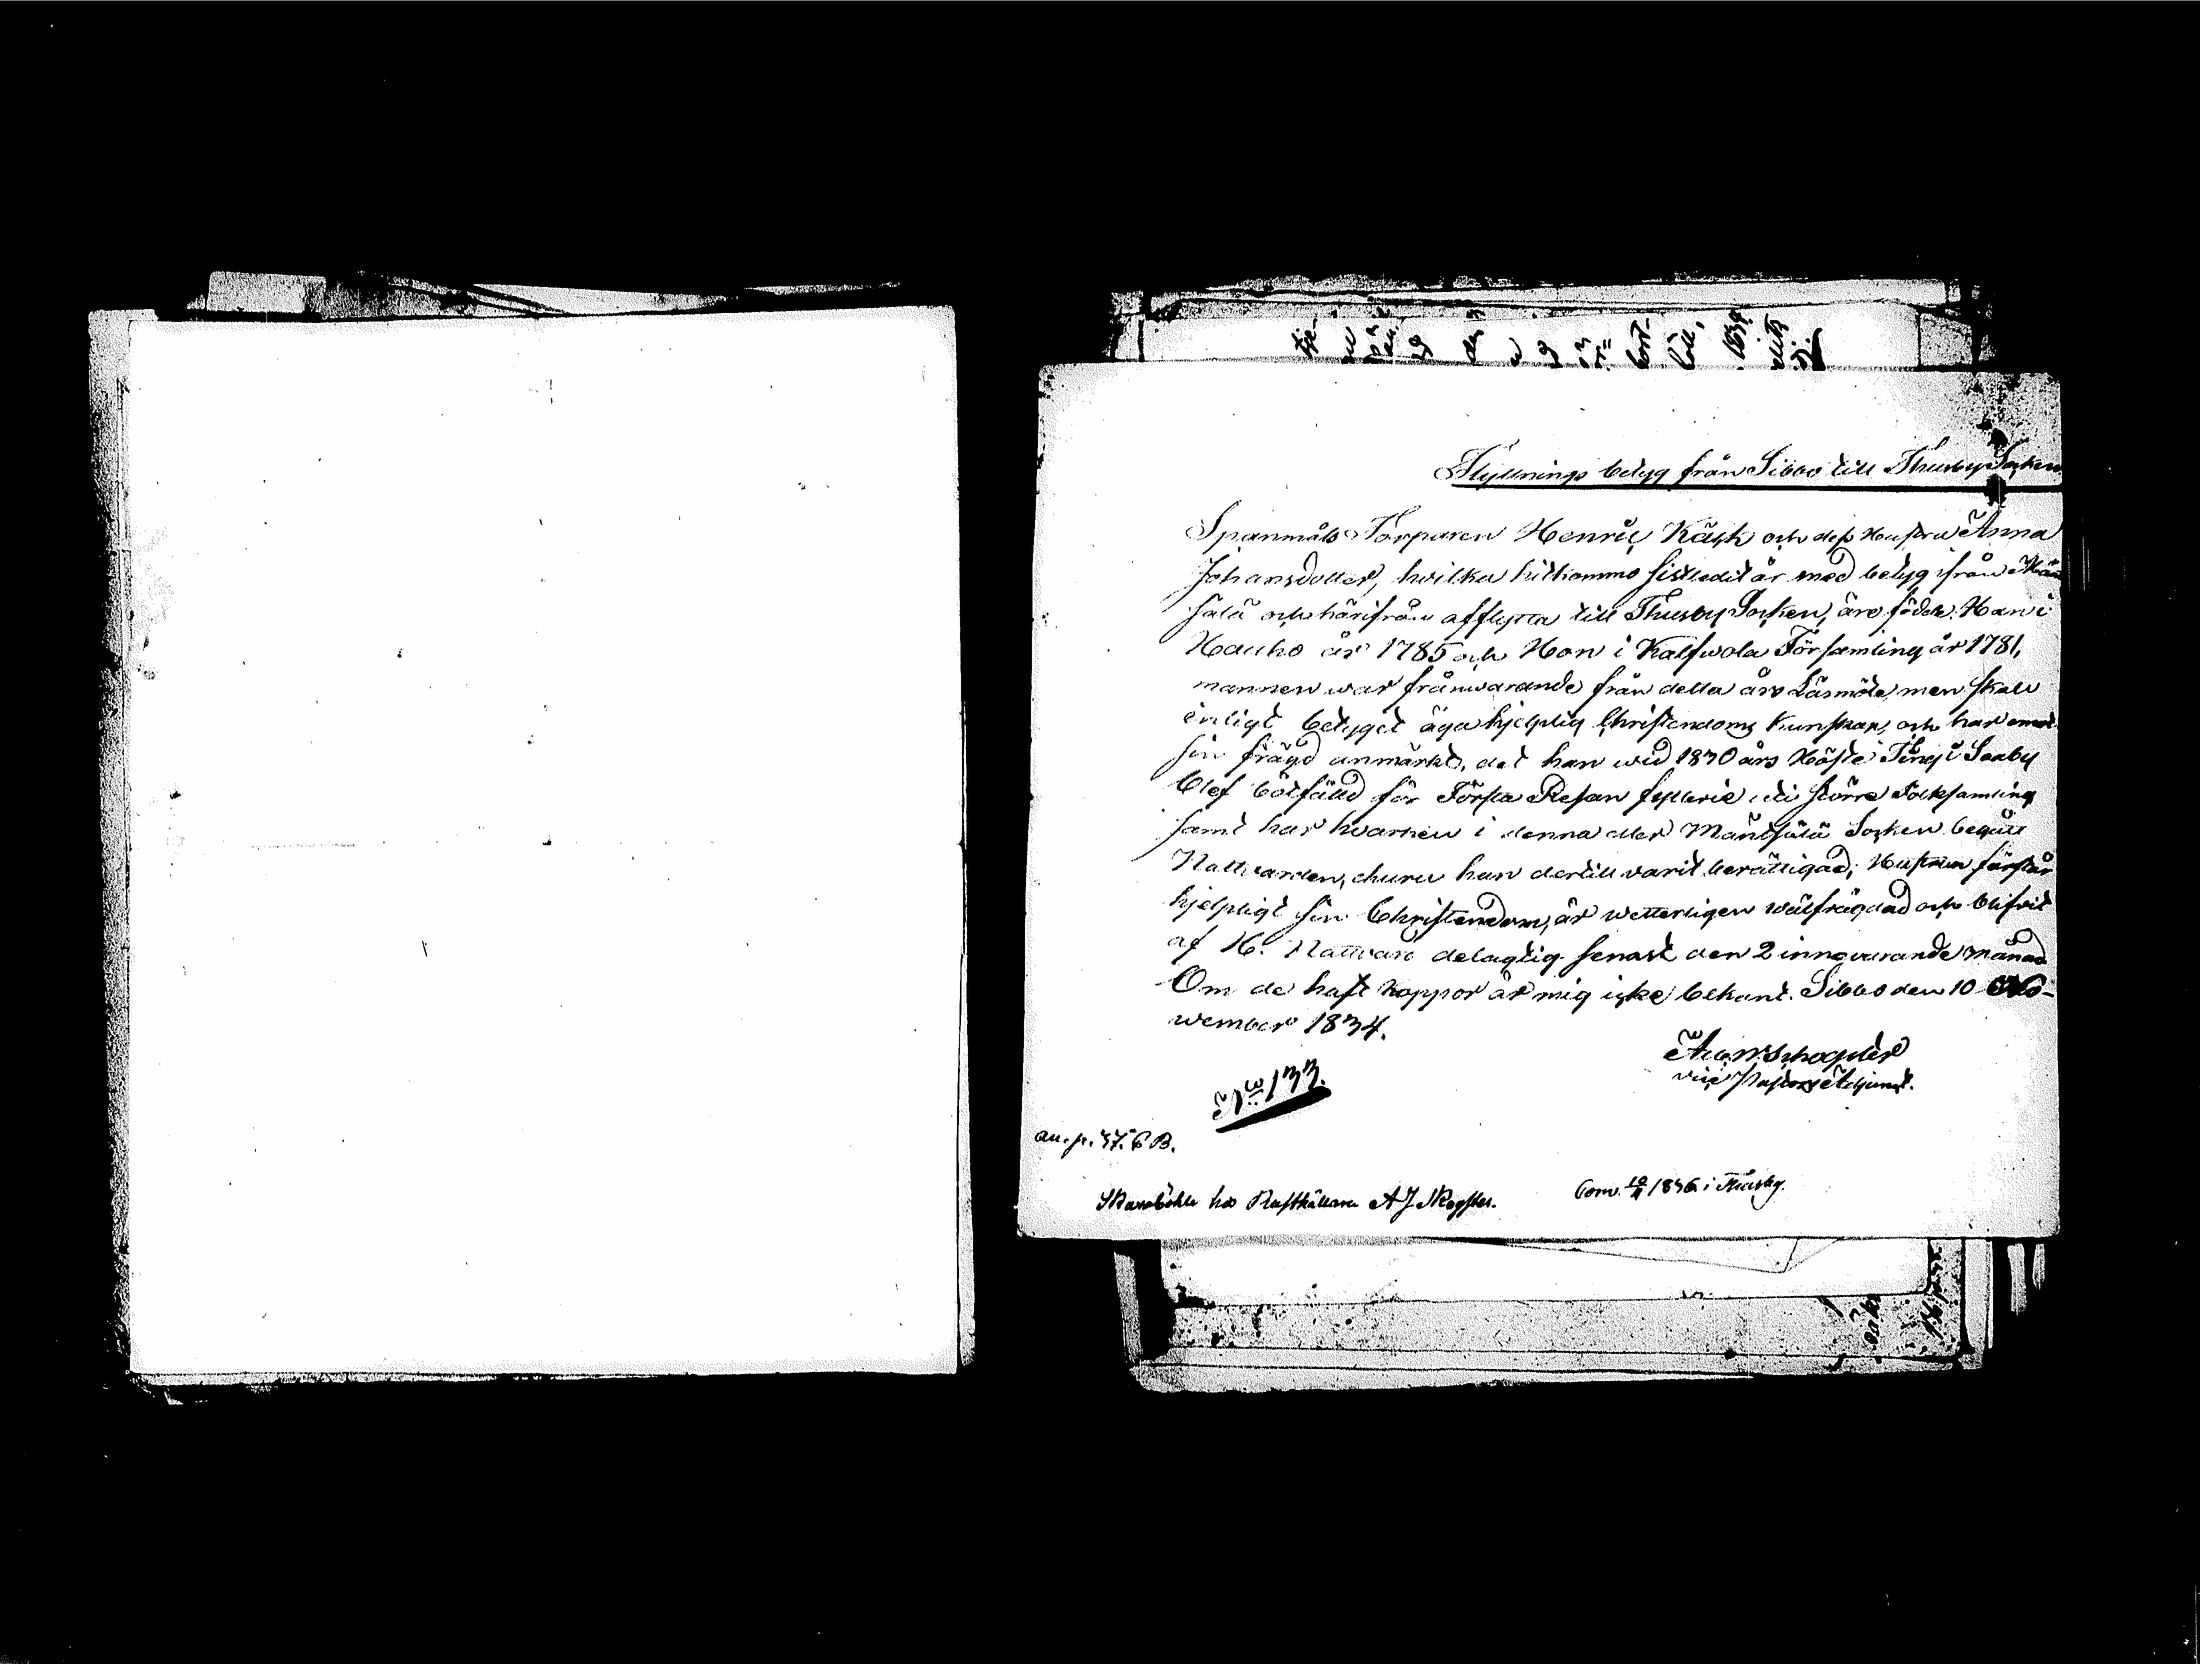 Flyttnings betyg från Sibbo till Thusby Socken
Spanmåls Torparen Henric Käsk och dess Hustru Anna
Johansdotter, hvilka hitkommo sistledit år med betyg ifrån Män
sälä och härifrån afflytta till Thusby Socken, äro födde: Han i
Hauho år 1785 och Hon i Kalfwola Församling år 1781,
mannen war frånwarande från detta års Läsmöte, men skall
enligt betyget äga hjelplig Christendoms Kunskap, och har emot
sin frägd anmärkt, det han wid 1830 års Höste Ting i Saxby
blef bötfälld för Första Resan fylleri uti större Folksamling
samt har hvarken i denna eller Mäntsälä Socken begått
Nattvarden, churu han dertill varit berättigad; Hustrun förstår
hjelpligt sin Christendom, är wetterligen wälfrägdad och blifvit
af H. Nattvard delagtig senast den 2 innevarande månad
Om de haft koppor är mig icke bekant. Sibbo den 10 No-
wember 1834.
vice Pastors Adjunct.
No 133.
an. p. 37. C B.
hos Rusthållare A J Skogster.
Com. 10/11 1836 i Thusby.